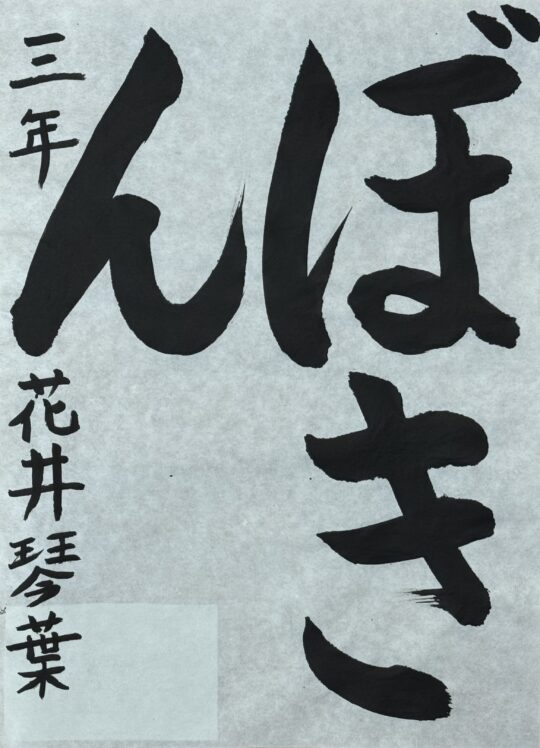 ぼき
ん
三年 花井琴葉